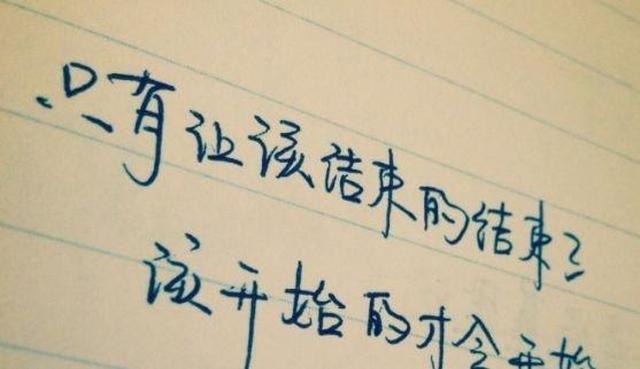 只有让该结束的结束了
该开始的才会开始